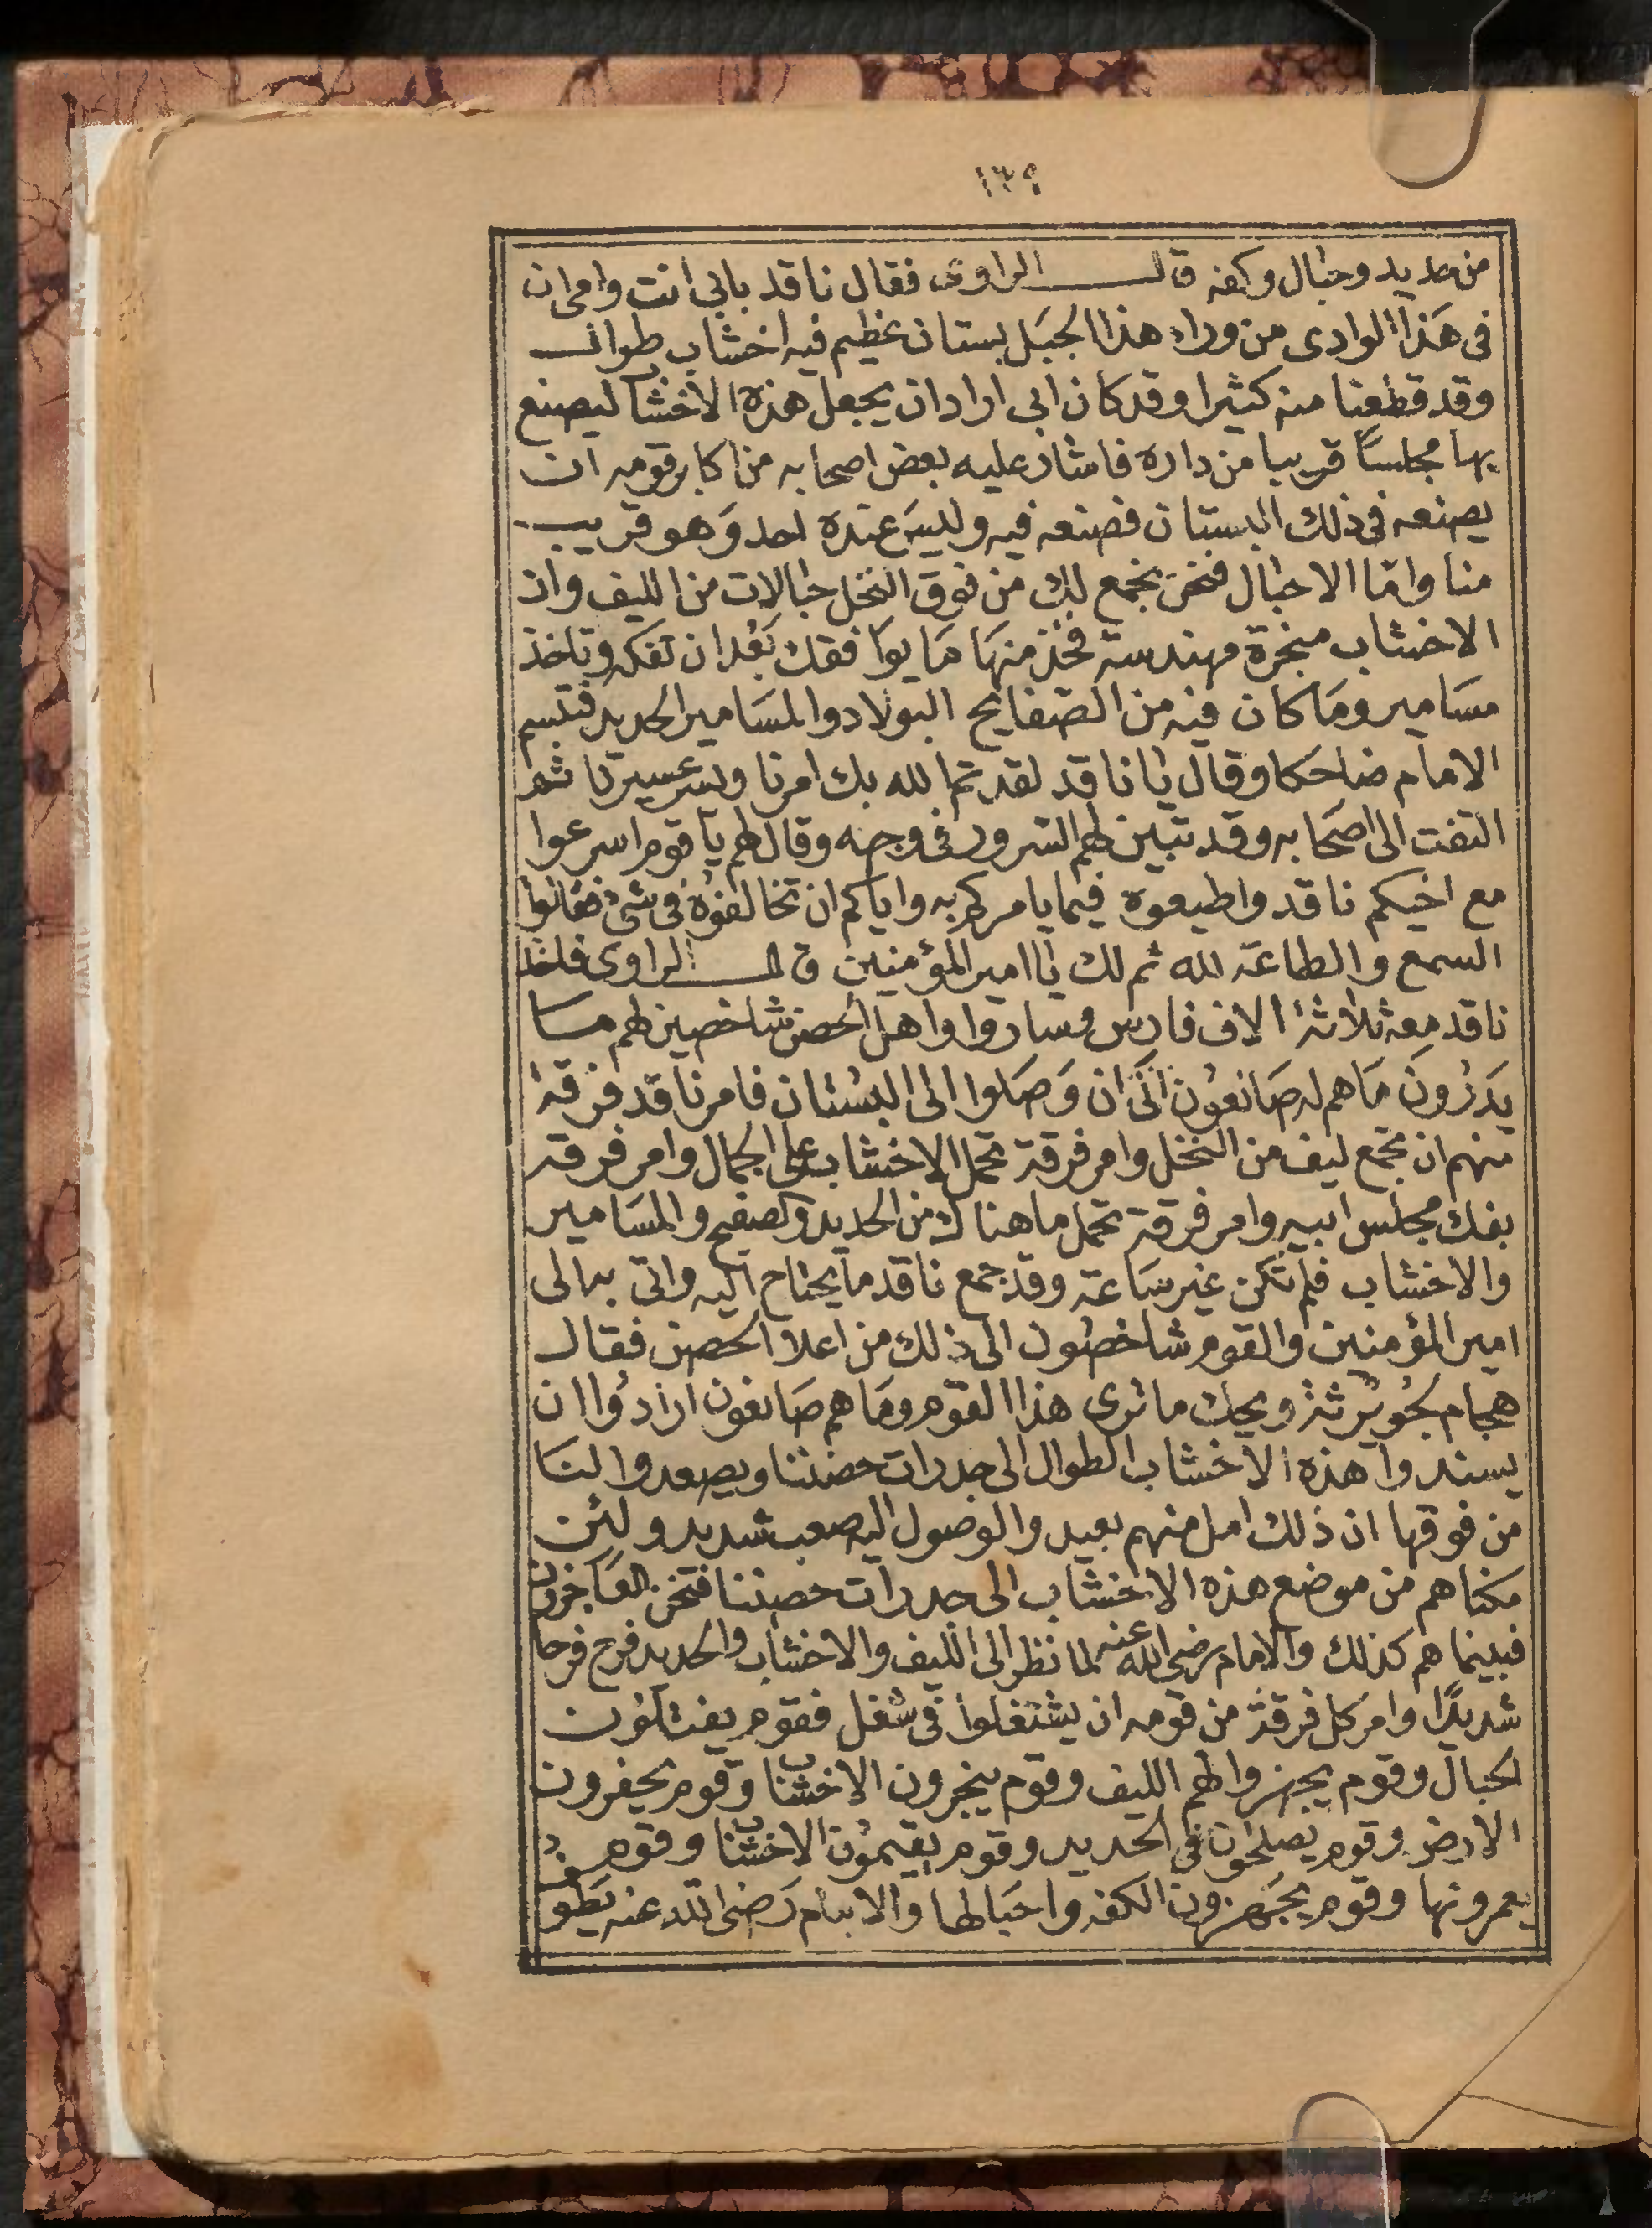 ١٣٩
من حديد وحبال وكفه قال الراوى فقال ناقد بابي انت وامى ان
فى هَذا الوادى من وراء هذا الجبَل بستان عظيم فيه اخشاب طوال
وقد قطعنا منه كثيرا وقد كان ابى اراد ان يجعل هذه الاخشاب ليصنع
بها مجلسًا قريبا من داره فاشار عليه بعض اصحابه من اكابر قومه ان
يصنعه فى ذلك البستان فصنعه فيه وليسَ عنده احد وَهو قريب
منا وامّا الاحبال فنحن نجمع لك من فوق النخل حبالات من الليف وان
الاخشاب منجرة مهندسة فخذ منهَا مَا يوافقك بَعْد ان تفكه وتاخذ
مسَامير ومَا كان فيه من الصّفايح البولاد والمسَامير الحديد فتبسم
الامام ضاحكا وقال يا ناقد لقد تم الله بك امرنا ويسر عسيرنا ثم
التفت الى اصحَابه وقد تبين لهم السرور فى وجهه وقال لهم يا قوم اسرعوا
مع اخيكم ناقد واطيعوه فيما يامركم به واياكم ان تخالفوُه فى شئ فقالوا
السمع والطاعَة لله ثم لك يا امير المؤمنين قال الراوى فاخذ
ناقد معهْ ثلاثة الاف فارس وسَاروا واهل الحصن شاخصين لهم مــا
يَدْرُونَ مَا هم له صَانعُون الَى ان وَصَلوا الى البُستان فامر ناقد فرقة
منهم ان تجمع ليف من النخل وامر فرقة تحمل الاخشاب على الجمال وامر فرقة
بفك مجلس ابيه وامر فرقة تحمل ما هناك من الحديد وكصفيح والمسَامير
والاخشاب فلم تكن غير سَاعَة وقد جمع ناقد ما يحتاج اليه واتى به الى
امير المؤمنين والقوم شاخصُون الى ذلك من اعلا الحصن فقال
هجام لجُويْرثة ويحك ما ترى هذا القوم ومَا هم صَانعون ارادُوا ان
يسندوا هذه الاخشاب الطوال الى جدرات حصننا ويصعدوا لنَا
من فوقها ان ذلك امل منهم بعيد والوصول اليه صعب شديد ولئن
مكناهم من موضع هذه الاخشاب الى جدرات حصننا فنحن العَاجزون
فبينما هم كذلك والامام رضى الله عنه لما نظر الى الليف والاخشاب والحديد فرح فرحا
شديدًا وامر كل فرقة من قومه ان يشتغلوا فى شغل فقوم يفتلون
الحبال وقوم يجهزوا لهم الليف وقوم ينجرون الاخشاب وقوم يحفرون
الارض وقوم يصلحون فى الحديد وقوم يقيمُون الاخشاب وقوم
يعمرونها وقوم يجَهزون الكفه واحبَالها والامام رَضى الله عنه يَطوف